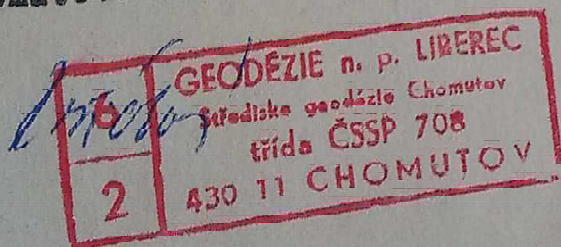 GEODÉZIE n. p. LIBEREC
Středisko geodézie Chomutov
třída ČSSP 708
430 11 CHOMUTOV
6
2